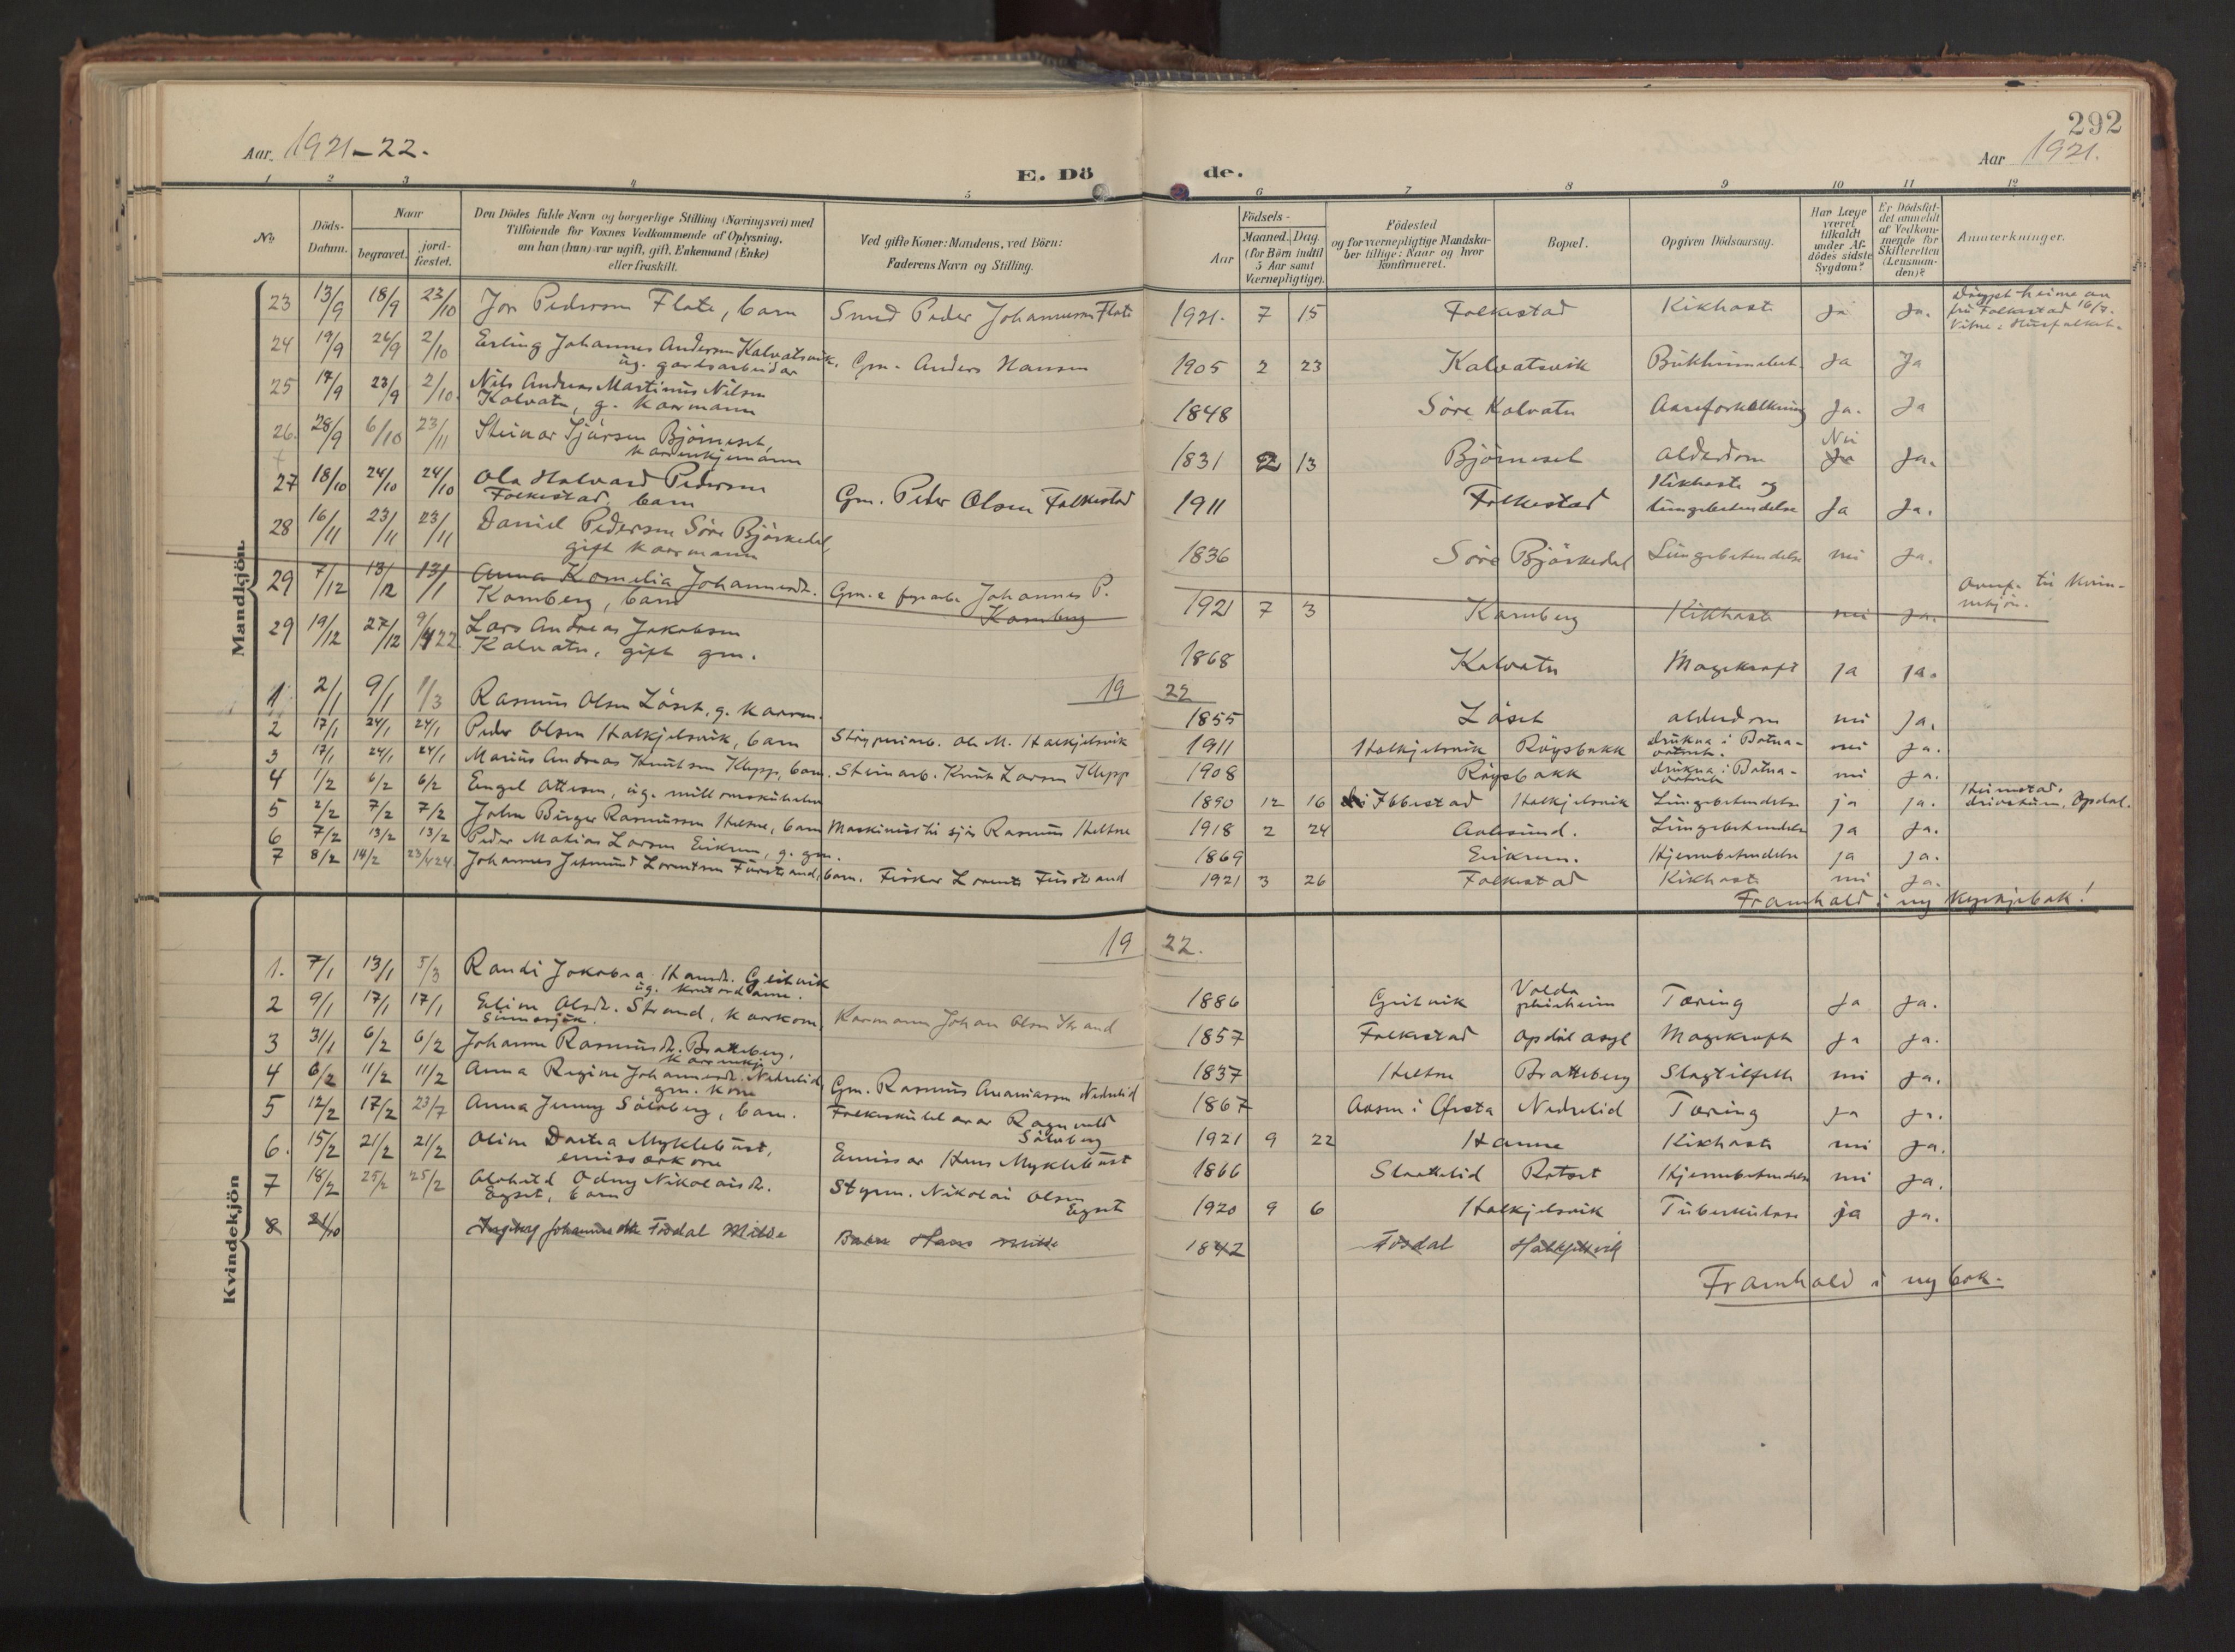 292
Aar 1921-22.
Aar 1921.
E. Dö de.
1 2 3 4 5 6 7 8 9 10 11 12
No.
Döds-Datum.
Naar
begravet.
jord-fæstet.
Den Dödes fulde Navn og borgerlige Stilling (Næringsvei) med
Tilföiende for Voxnes Vedkommende af Oplysning,
om han (hun) var ugift, gift, Enkemand (Enke)
eller fraskilt.
Ved gifte Koner: Mandens, ved Börn:
Faderens Navn og Stilling.
Födsels-
Aar
Maaned. Dag.
(for Börn indtil
5 Aar samt
Værnepligtige).
Födested
og for værnepligtige Mandska-
ber tillige: Naar og hvor
konfirmeret.
Bopæl.
Opgiven Dödsaarsag.
Har Læge
været
tilkaldt
under Af-
dödes sidste
Sygdom?
Er Dödsfal-
det anmeldt
af Vedkom-
mende for
Skifteretten
(Lensman-
den)?
Anmærkninger.
Mandkjön.
23 13/9 18/9 23/10 Jon Pederson Flate, barn Smed Peder Johannesen Flate 1921. 7 15 Folkestad Kikhoste Ja Ja. Döypt heime av
fru Folkestad 16/7.
24 19/9 26/9 2/10 Erling Johannes Andersen Kalvatsvik.
ug. gardsarbeidar Gm. Anders Hansen 1905 2 23 Kalvatsvik Ja Ja
25 17/9 23/9 2/10. Nils Andreas Martinus Nilsen
Kalvatn, g. kaarmann 1848 Söre Kalvatn Aareforkalkning Ja. Ja
26. 28/9 6/10 23/11 Steinar Sjursen Björneset,
1831 2 13 Björneset Alderdom Nei Ja Ja.
27 18/10 24/10 24/10 Ola Halvard Pedersen
Folkestad, barn Gm. Peder Olsen Folkestad 1911 Folkestad Kikhoste og
Lungebetendelse Ja Ja.
28 16/11 23/11 23/11 Daniel Pedersen Söre Björkedal,
gift kaarmann 1836 Söre Björkedal Lungebetendelse nei Ja.
29 7/12 13/12 13/1 Anna Kornelia Johannesdt.
Kornberg, barn Johannes P.
Kornberg 1921 7 3 Kornberg Kikhoste nei ja. Overf. til kvin-
nekjön.
29 19/12 27/12 9/4 22. Lars Andreas Jakobsen
Kalvatn, gift gm. 1868 Kalvatn Magekraft ja ja.
19 22
1 2/1 9/1 1/3 Rasmus Olsen Löset, g. kaarm. 1855 Löset alderdom nei ja.
2 17/1 24/1 24/1 Peder Olsen Halkjelsvik, barn Ole M. Halkjelsvik 1911 Halkjelsvik Röysbakk drukna i Botna-
vatnet. nei ja.
3 17/1 24/1 24/1 Marius Andreas Knutsen Klepp, barn. Steinarb. Knut Larsen Klepp 1908 Röysbakk drukna i Botna-
vatnet nei ja.
4 1/2 6/2 6/2 Engel Ottesen, ug. 1890 12 16 Ibbestad Halkjelsvik Lungebetendelse ja ja. Heimstad,
Opdal.
5 2/2 7/2 7/2 John Birger Rasmussen Heltne, barn Maskinist til sjös Rasmus Heltne 1918 2 24 Aalesund. Lungebetendelse ja ja.
6 7/2 13/2 13/2 Peder Matias Larsen Eikrem, g. gm. 1869 Eikrem. Hjernebetendelse ja ja.
7 8/2 14/2 23/4 24. Johannes Jetmund Lorentsen Furstrand, barn. Fiskar Lorents Furstrand 1921 3 26 Folkestad Kikhoste nei ja.
Framhald i ny kyrkjebok!
Kvindekjön
19 22.
1. 7/1 13/1 5/3 Randi Jakobea Hansdt. Geitvik
ug. 1886 Geitvik Volda
pleieheim Tæring Ja ja.
2 9/1 17/1 17/1 Eline Olsdt. Strand, kaarkone,
sinnesjuk. Kaarmann Johan Olsen Strand 1857 Folkestad Opdöl asyl Magekraft ja ja.
3 31/1 6/2 6/2 Johanne Rasmusdt. Bratteberg,
1837 Heltne Bratteberg Slagtilfelle nei ja.
4 6/2 11/2 11/2 Anna Regine Johannesdt. Nedrelid,
gm. kone Gm. Rasmus Ananiassen Nedrelid 1867 Aasen i Örsta Nedrelid Tæring ja ja.
5 12/2 17/2 23/7 Anna Jenny Sölvberg, barn. Folkeskulelærar Ragnvald
Sölvberg 1921 9 22 Hamre Kikhoste nei ja.
6. 15/2 21/2 21/2 Oline Dortea Myklebust,
emissærkone Emissær Hans Myklebust 1866 Slettelid Rotset Hjernebetendelse nei ja.
7 18/2 25/2 25/2 Alvhild Odny Nikolaisdt.
Egset, barn Styrm. Nikolai Olsen
Egset 1920 9 6 Halkjelsvik Tuberkulose ja ja.
8 21/10 Ingeborg Johannesdtr Fosdal Milde Hans Milde 1842 Fosdal Halkjelsvik
Framhald i ny bok.